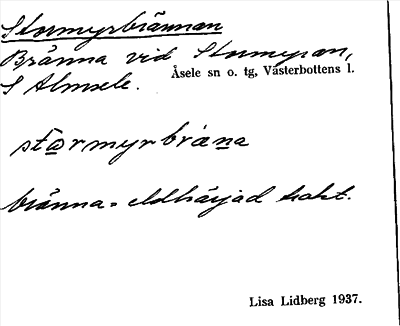 Stormyrbrännan
Bränna vid Stormyran,
Åsele sn o. tg, Västerbottens l.
S Almsele.
stormyrbräna
bränna = eldhärjad trakt.
Lisa Lidberg 1937.